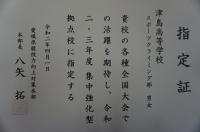 指定証
津島高等学校
スポーツクライミング部 男女
貴校の各種全国大会で
の活躍を期待し、令和
二・三年度 集中強化型
拠点校に指定する
令和二年四月一日
愛媛県競技力向上対策本部
本部長 八矢 拓